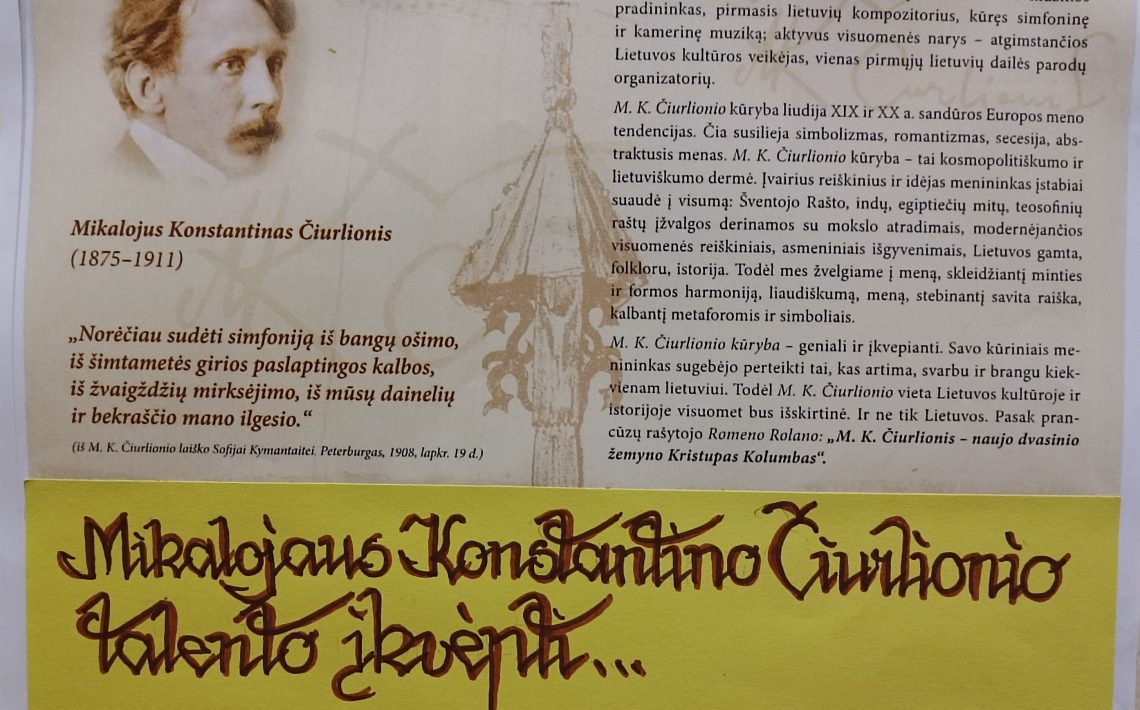 pradininkas, pirmasis lietuvių kompozitorius, kūręs simfoninę
ir kamerinę muziką; aktyvus visuomenės narys – atgimstančios
Lietuvos kultūros veikėjas, vienas pirmųjų lietuvių dailės parodų
organizatorių.
M. K. Čiurlionio kūryba liudija XIX ir XX a. sandūros Europos meno
tendencijas. Čia susilieja simbolizmas, romantizmas, secesija, abs-
traktusis menas. M. K. Čiurlionio kūryba – tai kosmopolitiškumo ir
lietuviškumo dermė. Įvairius reiškinius ir idėjas menininkas įstabiai
suaudė į visumą: Šventojo Rašto, indų, egiptiečių mitų, teosofinių
raštų įžvalgos derinamos su mokslo atradimais, modernėjančios
visuomenės reiškiniais, asmeniniais išgyvenimais, Lietuvos gamta,
folkloru, istorija. Todėl mes žvelgiame į meną, skleidžiantį minties
ir formos harmoniją, liaudiškumą, meną, stebinantį savita raiška,
kalbantį metaforomis ir simboliais.
M. K. Čiurlionio kūryba – geniali ir įkvepianti. Savo kūriniais me-
nininkas sugebėjo perteikti tai, kas artima, svarbu ir brangu kiek-
vienam lietuviui. Todėl M. K. Čiurlionio vieta Lietuvos kultūroje ir
istorijoje visuomet bus išskirtinė. Ir ne tik Lietuvos. Pasak pran-
cūzų rašytojo Romeno Rolano: „M. K. Čiurlionis – naujo dvasinio
žemyno Kristupas Kolumbas“.
Mikalojus Konstantinas Čiurlionis
(1875–1911)
„Norėčiau sudėti simfoniją iš bangų ošimo,
iš šimtametės girios paslaptingos kalbos,
iš žvaigždžių mirksėjimo, iš mūsų dainelių
ir bekraščio mano ilgesio.“
(iš M. K. Čiurlionio laiško Sofijai Kymantaitei. Peterburgas, 1908, lapkr. 19 d.)
Mikalojaus Konstantino Čiurlionio
talento įkvėpti...